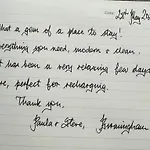 20th May 20
What a gem of a place to stay!
Everything you need, modern & clean.
It has been a very relaxing few days
, perfect for recharging.
Thank you.
Paula & Steve, Birmingham